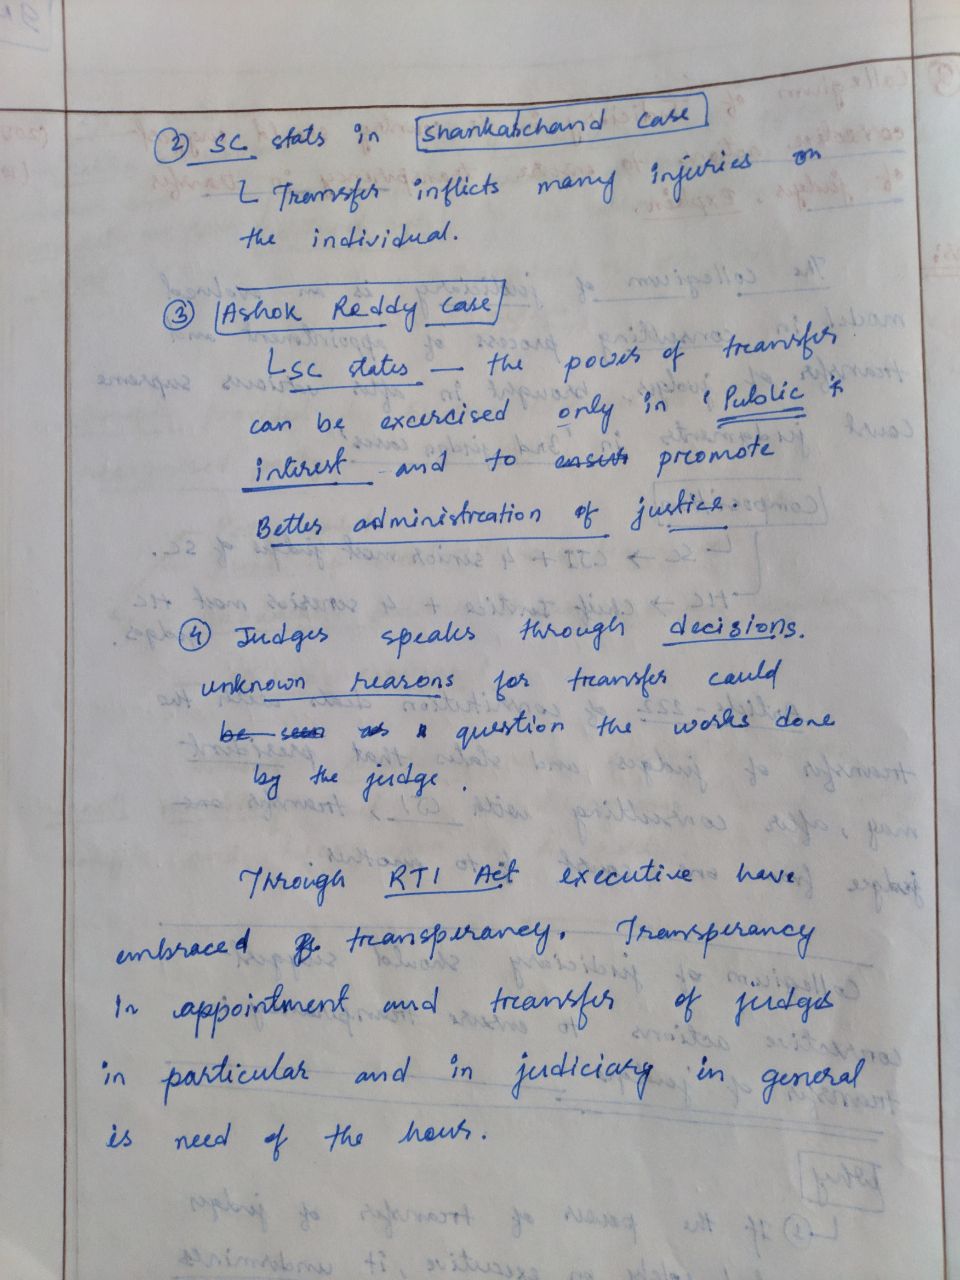 ② SC stats in Shankalchand Case
Transfer inflicts many injuries on
the individual.
③ Ashok Reddy Case
SC states — the power of transfer
can be excercised only in 'Public
interest and to ensure promote
Better administration of justice.
④ Judges speaks through decisions.
unknown reasons for transfer could
be seen as question the works done
by the judge.
Through RTI Act executive have
embraced transperancy. Transperancy
in appointment and transfer of judges
in particular and in judiciary in general
is need of the hour.